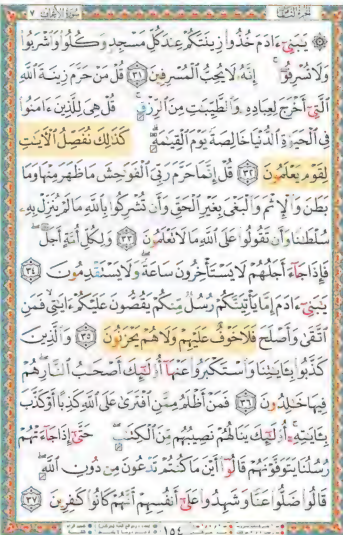 الجزء الثامن سورة الأعراف ٧
۞ يَٰبَنِىٓ ءَادَمَ خُذُوا۟ زِينَتَكُمْ عِندَ كُلِّ مَسْجِدٍ وَكُلُوا۟ وَٱشْرَبُوا۟
وَلَا تُسْرِفُوٓا۟ إِنَّهُۥ لَا يُحِبُّ ٱلْمُسْرِفِينَ ٣١ قُلْ مَنْ حَرَّمَ زِينَةَ ٱللَّهِ
ٱلَّتِىٓ أَخْرَجَ لِعِبَادِهِۦ وَٱلطَّيِّبَٰتِ مِنَ ٱلرِّزْقِ قُلْ هِىَ لِلَّذِينَ ءَامَنُوا۟
فِى ٱلْحَيَوٰةِ ٱلدُّنْيَا خَالِصَةً يَوْمَ ٱلْقِيَٰمَةِ كَذَٰلِكَ نُفَصِّلُ ٱلْءَايَٰتِ
لِقَوْمٍ يَعْلَمُونَ ٣٢ قُلْ إِنَّمَا حَرَّمَ رَبِّىَ ٱلْفَوَٰحِشَ مَا ظَهَرَ مِنْهَا وَمَا
بَطَنَ وَٱلْإِثْمَ وَٱلْبَغْىَ بِغَيْرِ ٱلْحَقِّ وَأَن تُشْرِكُوا۟ بِٱللَّهِ مَا لَمْ يُنَزِّلْ بِهِۦ
سُلْطَٰنًا وَأَن تَقُولُوا۟ عَلَى ٱللَّهِ مَا لَا تَعْلَمُونَ ٣٣ وَلِكُلِّ أُمَّةٍ أَجَلٌ
فَإِذَا جَآءَ أَجَلُهُمْ لَا يَسْتَأْخِرُونَ سَاعَةً وَلَا يَسْتَقْدِمُونَ ٣٤
يَٰبَنِىٓ ءَادَمَ إِمَّا يَأْتِيَنَّكُمْ رُسُلٌ مِّنكُمْ يَقُصُّونَ عَلَيْكُمْ ءَايَٰتِى فَمَنِ
ٱتَّقَىٰ وَأَصْلَحَ فَلَا خَوْفٌ عَلَيْهِمْ وَلَا هُمْ يَحْزَنُونَ ٣٥ وَٱلَّذِينَ
كَذَّبُوا۟ بِـَٔايَٰتِنَا وَٱسْتَكْبَرُوا۟ عَنْهَآ أُو۟لَٰٓئِكَ أَصْحَٰبُ ٱلنَّارِ هُمْ
فِيهَا خَٰلِدُونَ ٣٦ فَمَنْ أَظْلَمُ مِمَّنِ ٱفْتَرَىٰ عَلَى ٱللَّهِ كَذِبًا أَوْ كَذَّبَ
بِـَٔايَٰتِهِۦٓ أُو۟لَٰٓئِكَ يَنَالُهُمْ نَصِيبُهُم مِّنَ ٱلْكِتَٰبِ حَتَّىٰٓ إِذَا جَآءَتْهُمْ
رُسُلُنَا يَتَوَفَّوْنَهُمْ قَالُوٓا۟ أَيْنَ مَا كُنتُمْ تَدْعُونَ مِن دُونِ ٱللَّهِ
قَالُوا۟ ضَلُّوا۟ عَنَّا وَشَهِدُوا۟ عَلَىٰٓ أَنفُسِهِمْ أَنَّهُمْ كَانُوا۟ كَٰفِرِينَ ٣٧
١٥٤